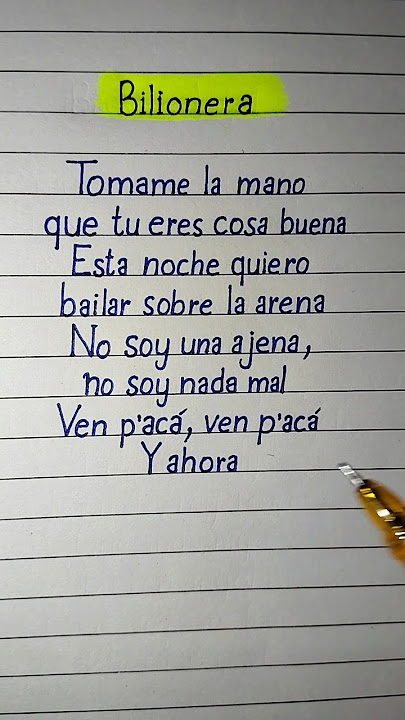 Bilionera
Tomame la mano
que tu eres cosa buena
Esta noche quiero
bailar sobre la arena
No soy una ajena,
no soy nada mal
Ven p'acá, ven p'acá
Y ahora